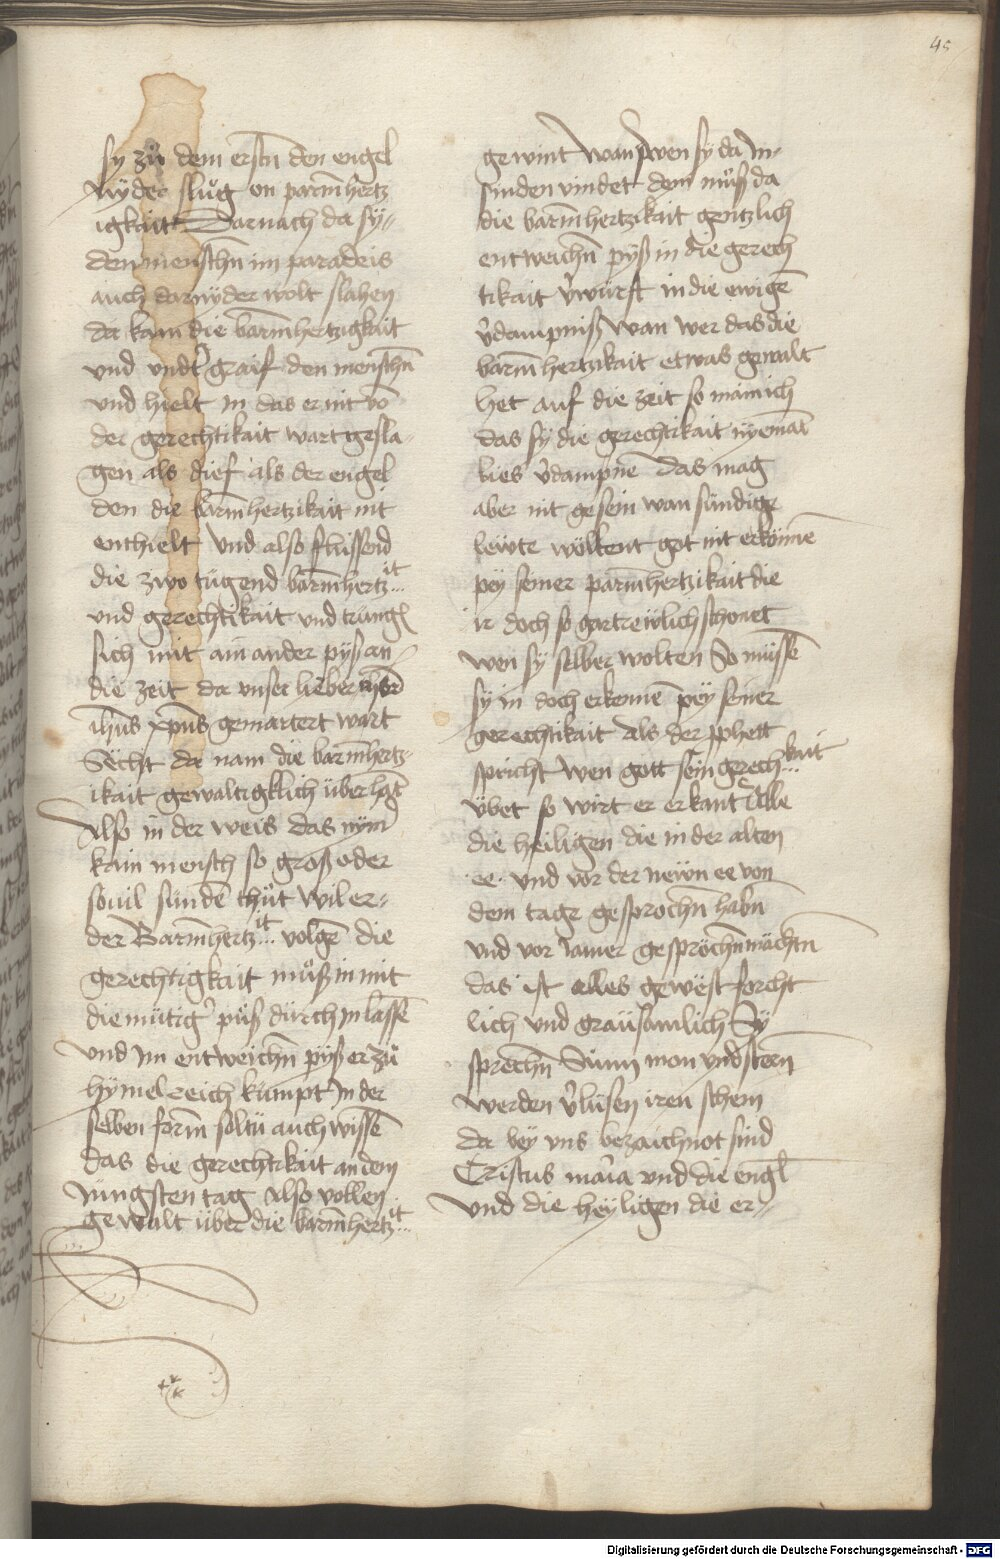 45
sy zů dem erstn̄ den engel
nyder slůg on parm̄hertz
igkait Darnach da sy
den menschn̄ im paradeis
auch darnyder wolt slahen
da kam die barm̄hertzigkait
und vndt̉ graif den menschn̄
vnd hielt in das er nit vō
der gerechtikait wart gesla-
gen als dief als der engel
den die barm̄hertzikait nit
enthielt vnd also flussend
die zwo tugend barm̄hertz..it
vnd gerechtikait vnd trungē
sich mit ain ander pyß an
die zeit da vnser lieber herr
ih̄us xp̄us gemartert wart
Secht da nam die barm̄hertz-
ikait gewaltigklich überhāt
Also in der weis das nym̄
kain mensch so groß oder
souil sundē thüt wil er-
der Barm̄hertz..it volgē die
gerechtigkait můß in mit
diemütig̉ půß durch in lassē
vnd im entweichn̄ pyß er zů
hymelreich kumpt In der
selben form soltu auch wissē
das die gerechtikait an dem
Jungsten tag also vollen
gewalt über die barm̄hertz..it
gewint wan wen sy da in
sunden vindet dem můß da
die barm̄hertzikait gentzlich
entweichn̄ pyß in die gerech
tikait v̉wurft in die ewigē
v̉dampniß wan wer das die
barm̄hertzikait etwas gewalt
het auf die zeit so main ich
das sy die gerechtikait nyemāt
lies v̉dampnē das mag
aber nit gesein wan sündige
lewte wöltent got nit erkēnnē
pey seiner parm̄hertzikait die
ir doch so gar trewlich schonet
wen sy selber wolten So müssē
sy in doch erkennē pey seiner
gerechtikait als der pphett
spricht wen gott sein gerech..kait
übet so wirt er erkant Alle
die heiligen die in der alten
.ee. vnd vor der newn ee von
dem tage gesprochn̄ habn̄
vnd vor iamer gesprochn̄ mächtn̄
das ist alles gewest forcht
lich vnd grausamlich Sy
sprechn̄ Sunn mon vnd stern̄
werden v̉lüsen iren schein
da bey vns bezaichnot sind
Cristus maria vnd die engl̄
vnd die heyligen die er-
Digitalisierung gefördert durch die Deutsche Forschungsgemeinschaft - DFG